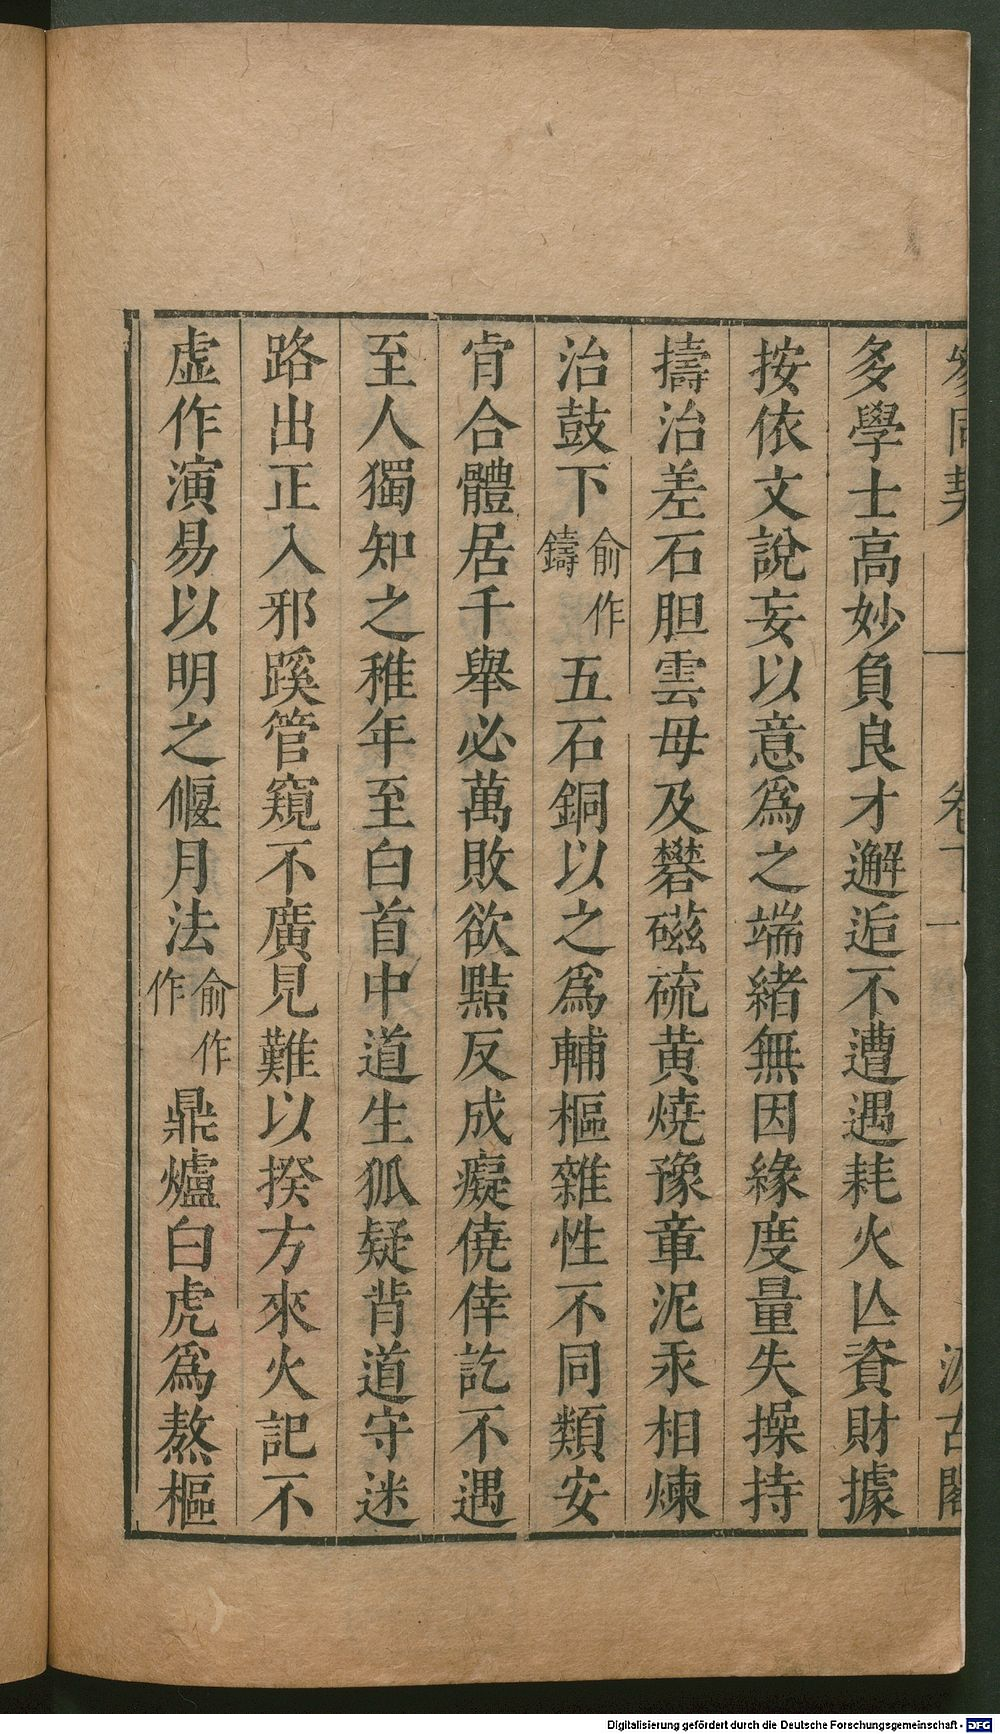 參同契 卷下 一 汲古閣
多學士高妙負良才邂逅不遭遇耗火亾資財據
按依文說妄以意爲之端緒無因緣度量失操持
擣治羌石胆雲母及礬磁硫黃燒豫章泥汞相煉
治鼓下俞作鑄五石銅以之爲輔樞雜性不同類安
肯合體居千舉必萬敗欲黠反成癡僥倖訖不遇
至人獨知之稚年至白首中道生狐疑背道守迷
路出正入邪蹊管窺不廣見難以揆方來火記不
虛作演易以明之偃月法俞作作鼎爐白虎爲熬樞
Digitalisierung gefördert durch die Deutsche Forschungsgemeinschaft - DFG